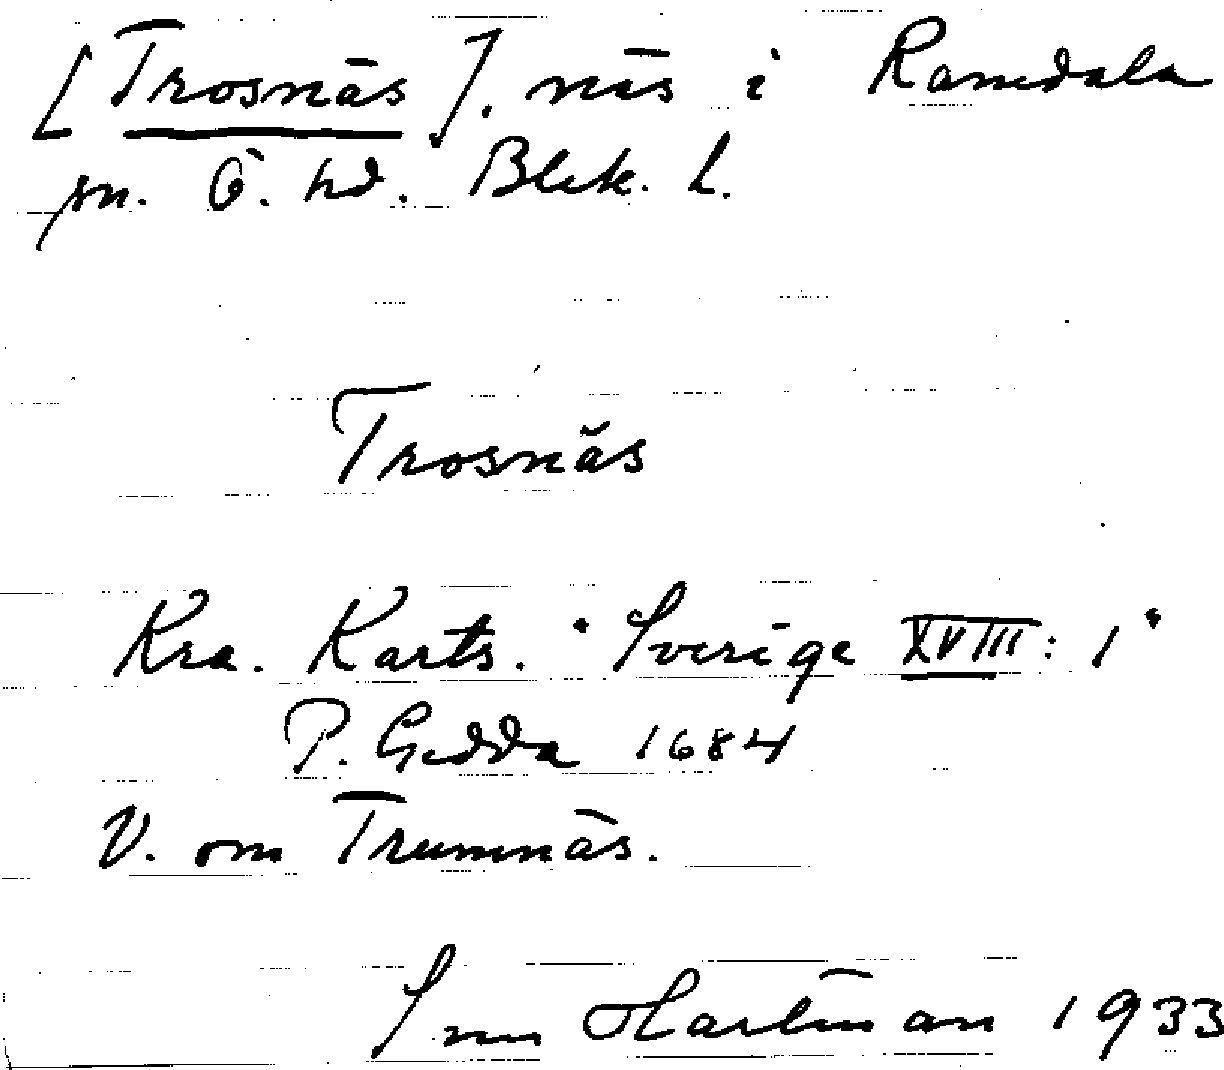 [Trosnäs]. näs i Ramdala
sn. Ö. hd. Blek. l.
Trosnäs
Kra. Karts. "Sverige XVIII: 1"
P. Gedda 1684
V. om Trumnäs.
Hartman 1933